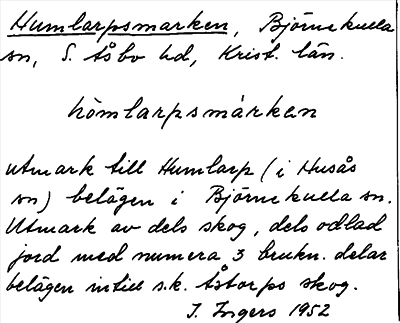 Humlarpsmarken, Björnekulla
sn, S. Åsbo hd, Krist. län.
hömlarpsmárken
utmark till Humlarp (i Husås
sn) belägen i Björnekulla sn.
Utmark av dels skog, dels odlad
jord med numera 3 brukn. delar
belägen intill s.k. Åstorps skog.
I. Ingers 1952